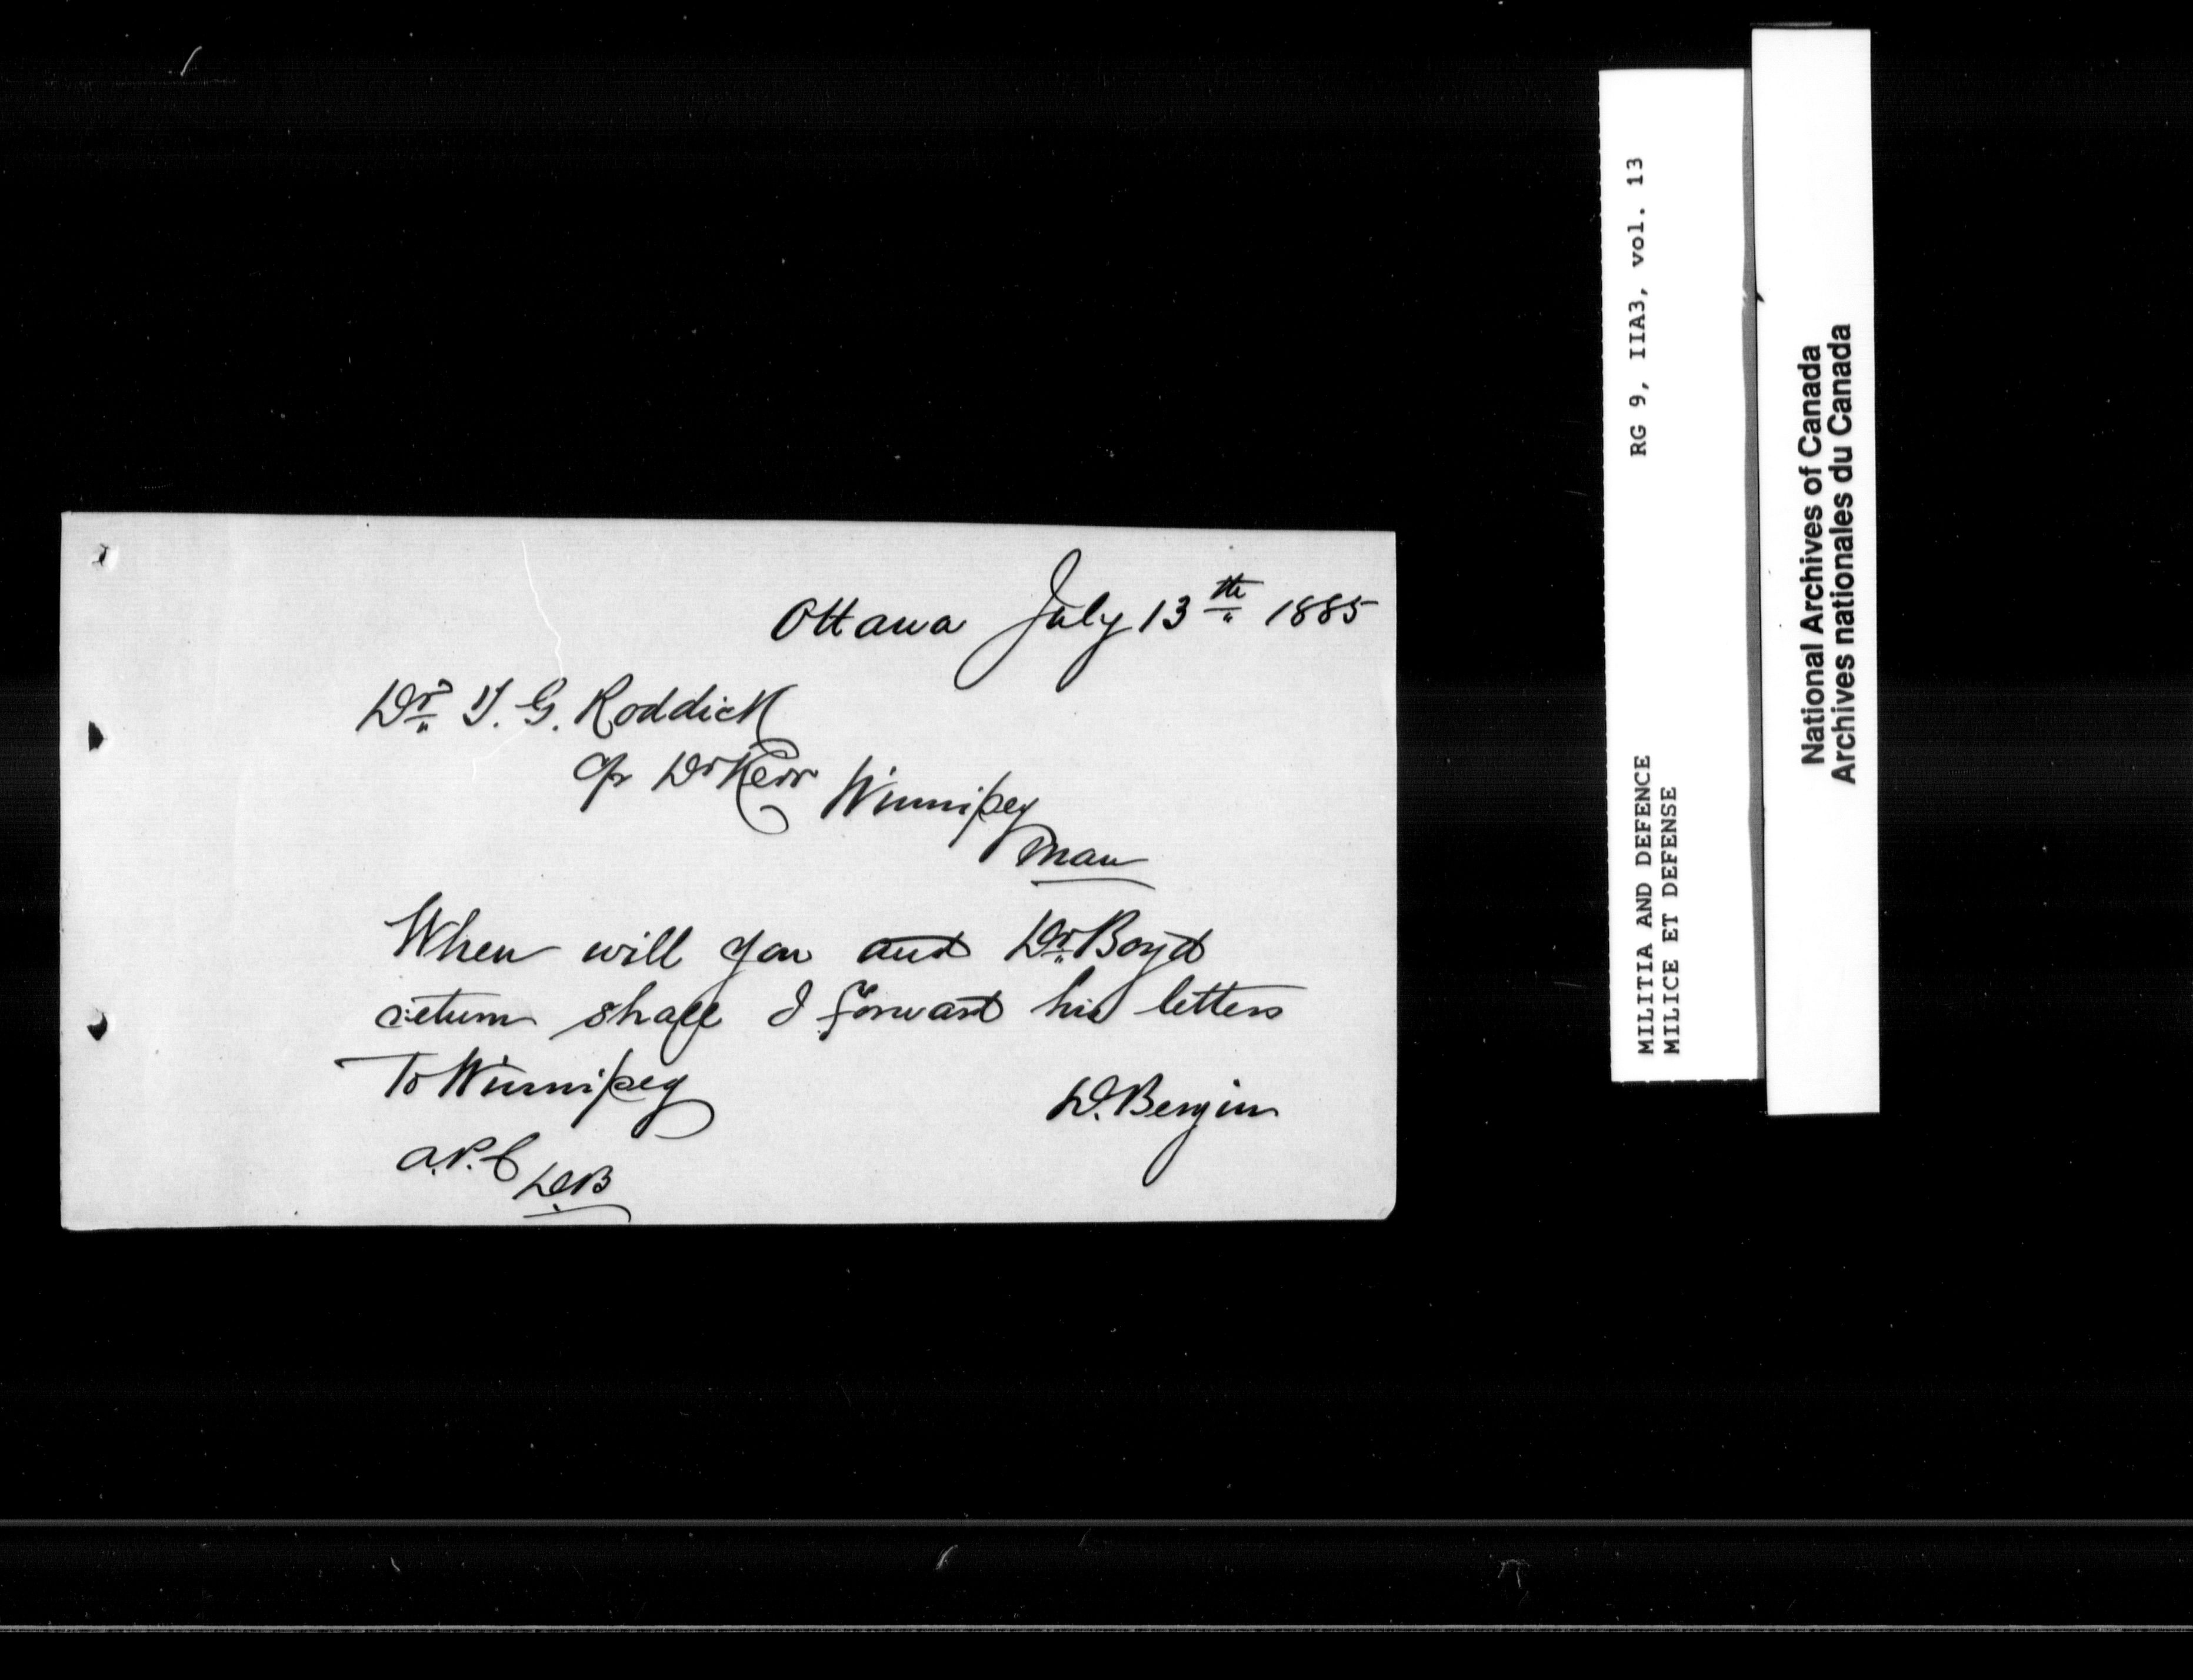 Ottawa July 13th 1885
Dr. T. G. Roddick
c/o Dr Kerr Winnipeg
Man
When will you and Dr. Boyd
return shall I forward his letters
To Winnipeg
D. Bergin
a.P.C
D.B
MILITIA AND DEFENCE RG 9, IIA3, vol. 13
MILICE ET DEFENSE
National Archives of Canada
Archives nationales du Canada